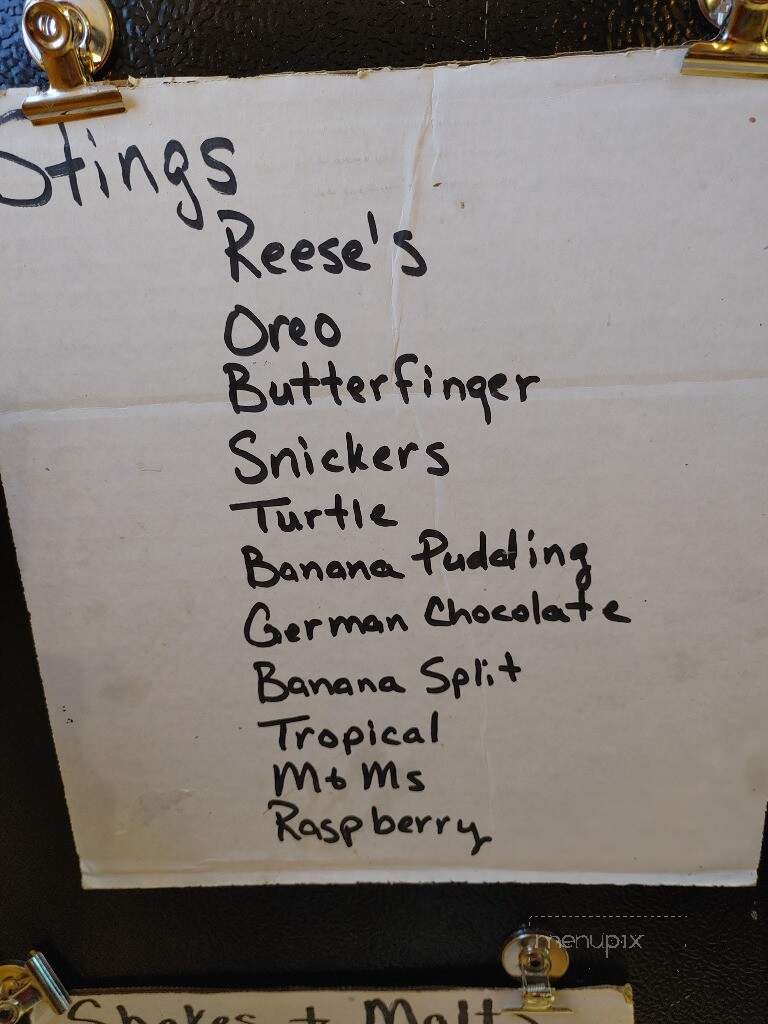 Stings
Reese's
Oreo
Butterfinger
Snickers
Turtle
Banana Pudding
German Chocolate
Banana Split
Tropical
M+Ms
Raspberry
menupix
Shakes + Malts